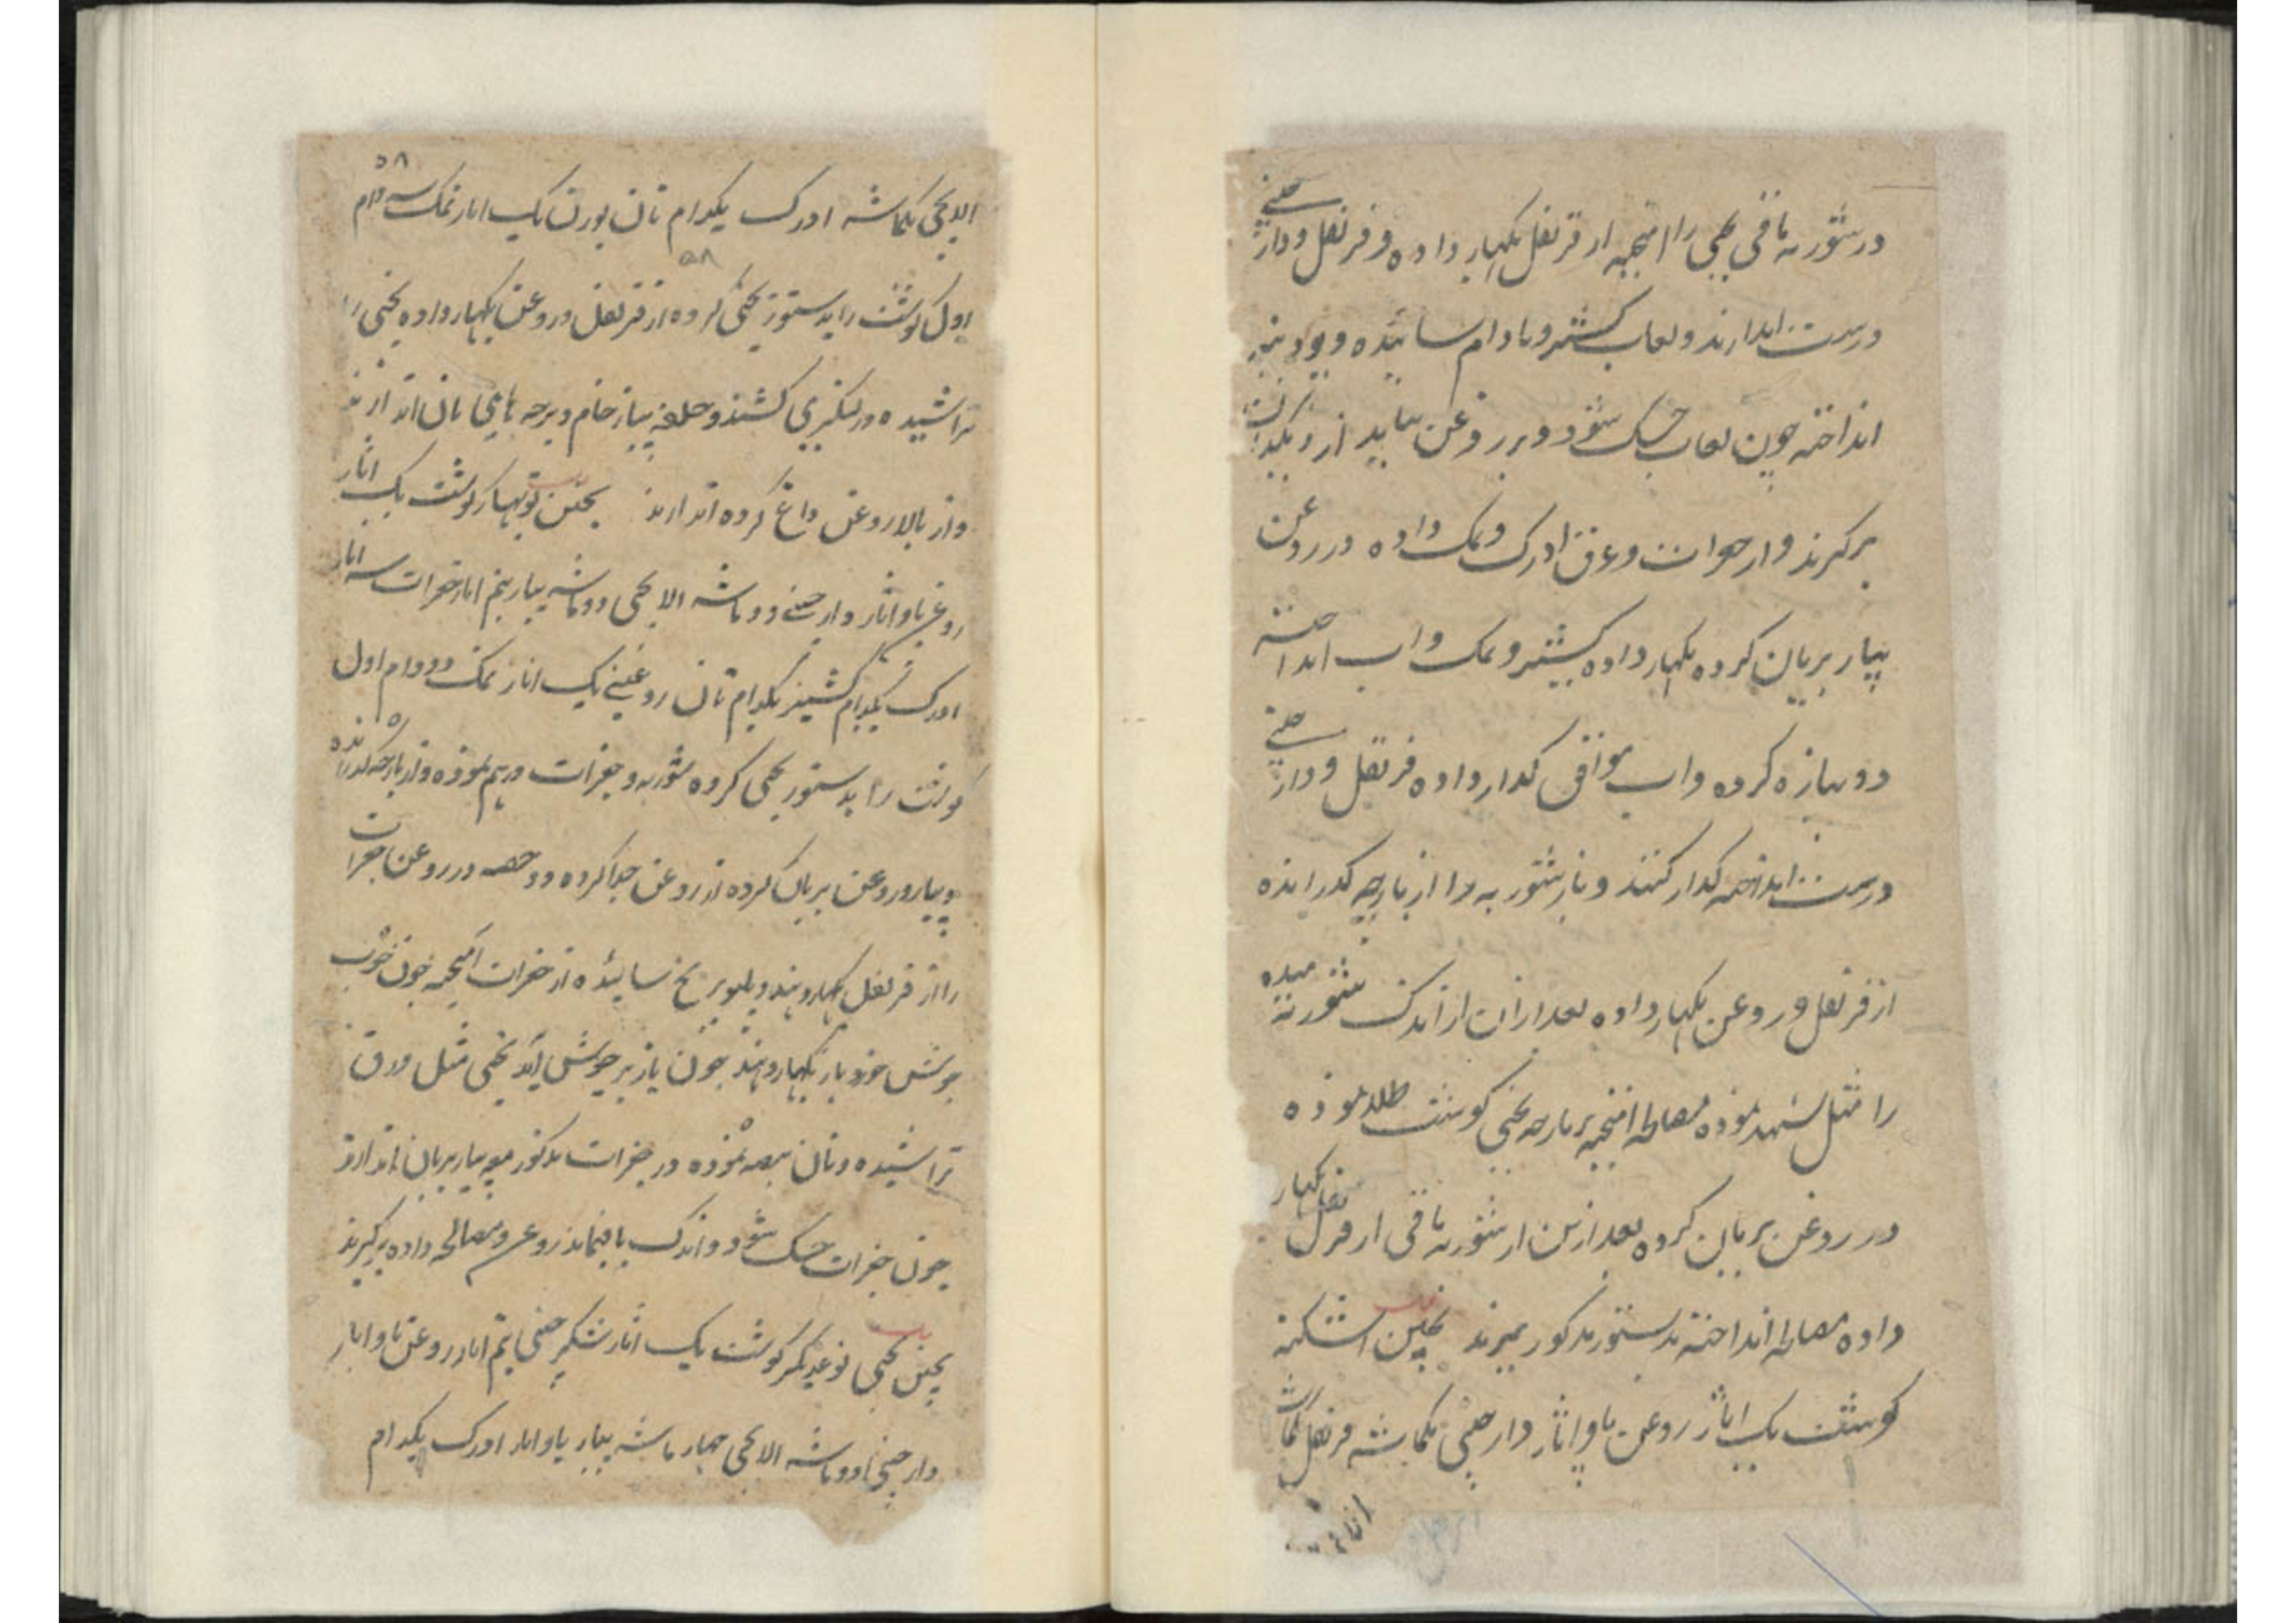 در شوربه باقی یخنی را آمیخته از قرنفل بگهار داده و قرنفل و دارچینی
درست اندازند و لعاب کشنیز و بادام سائیده و پودینه
انداخته چون لعاب خشک شود و بر روغن بیاید از دیگدان
برگیرند و از جغرات و عرق ادرک و نمک داده در روغن
پیاز بریان کرده بگهار داده کشنیز و نمک و آب انداخته
دوپیازه کرده و آب موافق گداز داده قرنفل و دارچینی
درست انداخته گداز کنند و باز شوربه را از پارچه گذرانیده
از قرنفل و روغن بگهار داده بعد ازان از اندک شوربه میده
را مثل شهد نموده مصالحه آمیخته بر پارچه یخنی گوشت طلا نموده
در روغن بریان کرده بعد ازین از شوربه باقی از قرنفل بگهار
داده مصالحه انداخته بدستور مذکور بپزند یخنی اشکنه
گوشت یک اثار روغن پاو اثار دارچینی یکماشه قرنفل یکماشه
۵۸
الایچی یکماشه ادرک یکدام نان بورن یک اثار نمک سه دام
۵۸
اول گوشت را بدستور یخنی کرده از قرنفل و روغن بگهار داده یخنی را
تراشیده در لنگری کشند و حلقه پیاز خام و پرچه های نان اندازند
و از بالا روغن داغ کرده اندازند یخنی بگهار گوشت یک اثار
روغن پاو اثار دارچینی دو ماشه الایچی دو ماشه پیاز نیم اثار جغرات سه اثار
ادرک یکدام کشنیز یکدام نان روغنی یک اثار نمک دو دام اول
گوشت را بدستور یخنی کرده شوربه و جغرات درهم نموده و از پارچه گذرانده
و پیاز در روغن بریان کرده از روغن جدا کرده دو حصه در روغن جغرات
را از قرنفل بگهار دهند و برنج سائیده از جغرات آمیخته چون خوب
جوش خورد باز بگهار دهند چون باز بر جوش آید یخنی مثل ورق
تراشیده و نان نموده در جغرات مذکور پیاز بریان اندازند
چون جغرات خشک شود و اندک باقیماند روغن و مصالحه داده برگیرند
یخنی نوعدیگر گوشت یک اثار نیم اثار روغن پاو اثار
دارچینی دو ماشه الایچی چهار ماشه پیاز پاو اثار ادرک یکدام